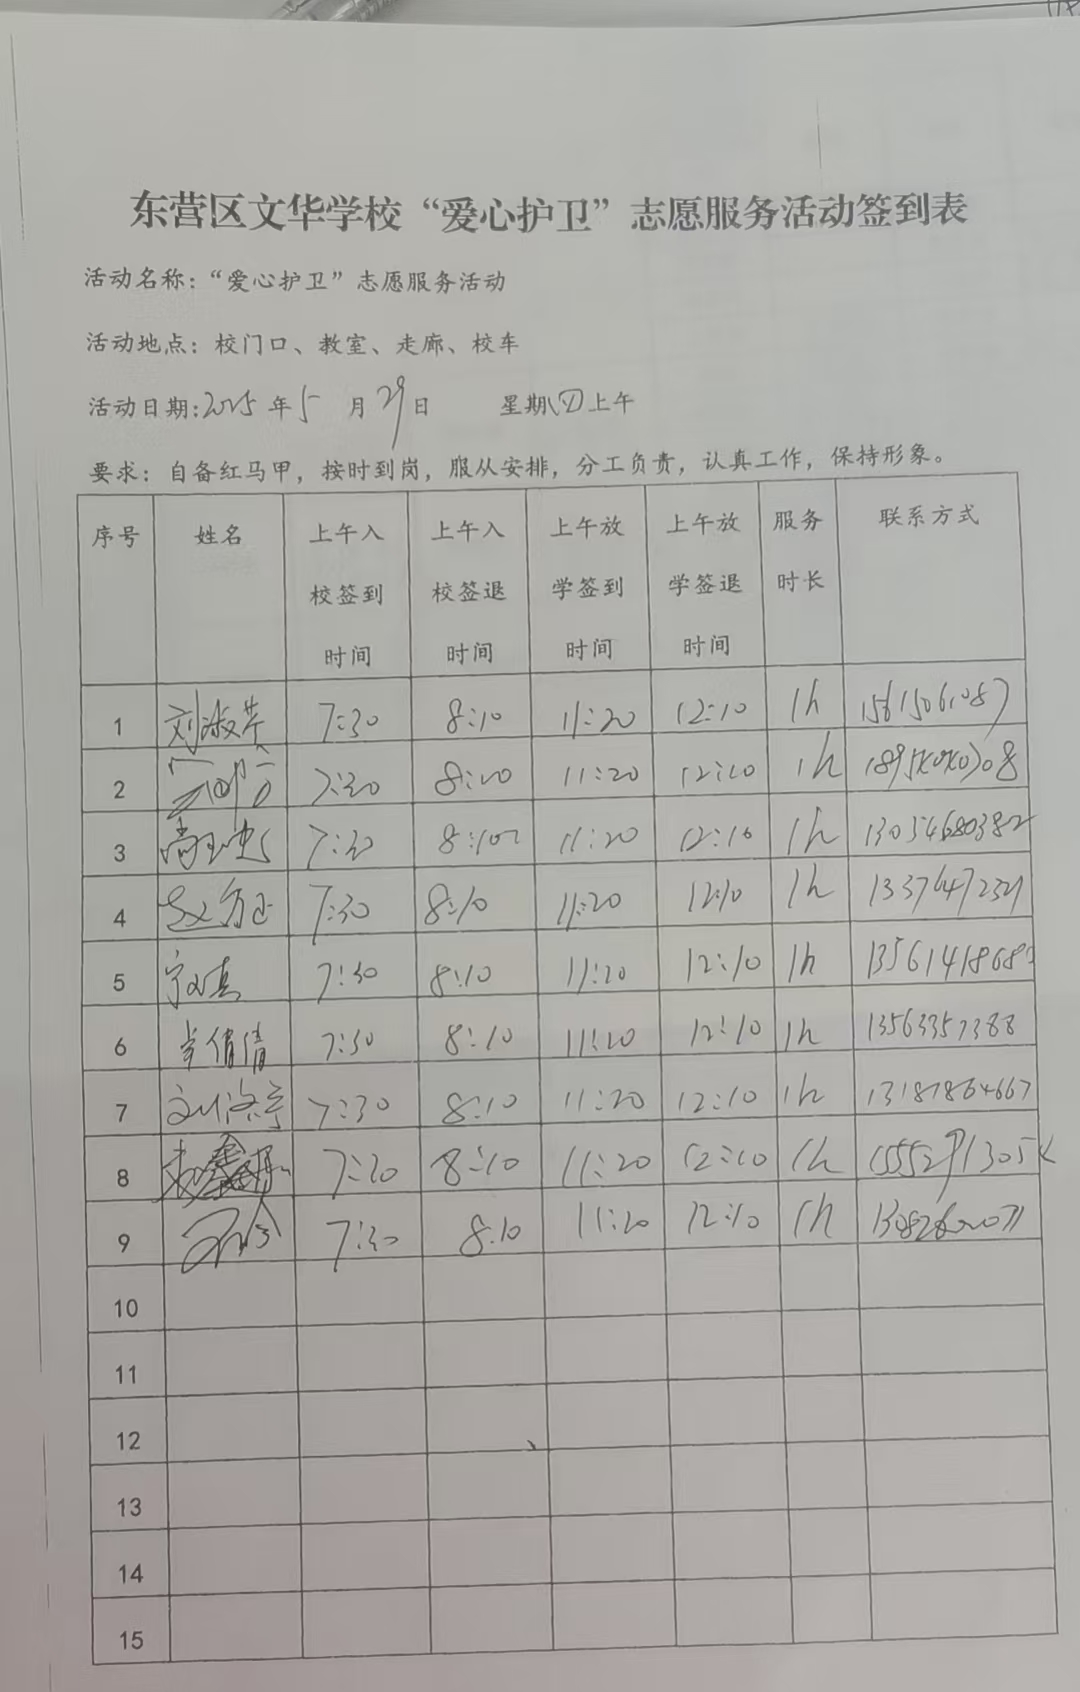 东营区文华学校“爱心护卫”志愿服务活动签到表
活动名称：“爱心护卫”志愿服务活动
活动地点：校门口、教室、走廊、校车
活动日期:2025年5月29日 星期四上午
要求：自备红马甲，按时到岗，服从安排，分工负责，认真工作，保持形象。
序号 姓名 上午入校签到时间 上午入校签退时间 上午放学签到时间 上午放学签退时间 服务时长 联系方式
1 刘淑芹 7:30 8:10 11:20 12:10 1h 15615061087
2 7:30 8:10 11:20 12:10 1h
3 7:30 8:10 11:20 12:10 1h 13054680382
4 7:30 8:10 11:20 12:10 1h
5 7:30 8:10 11:20 12:10 1h
6 倩倩 7:30 8:10 11:20 12:10 1h 13563357388
7 7:30 8:10 11:20 12:10 1h 13181864667
8 7:30 8:10 11:20 12:10 1h
9 7:30 8:10 11:20 12:10 1h
10
11
12
13
14
15